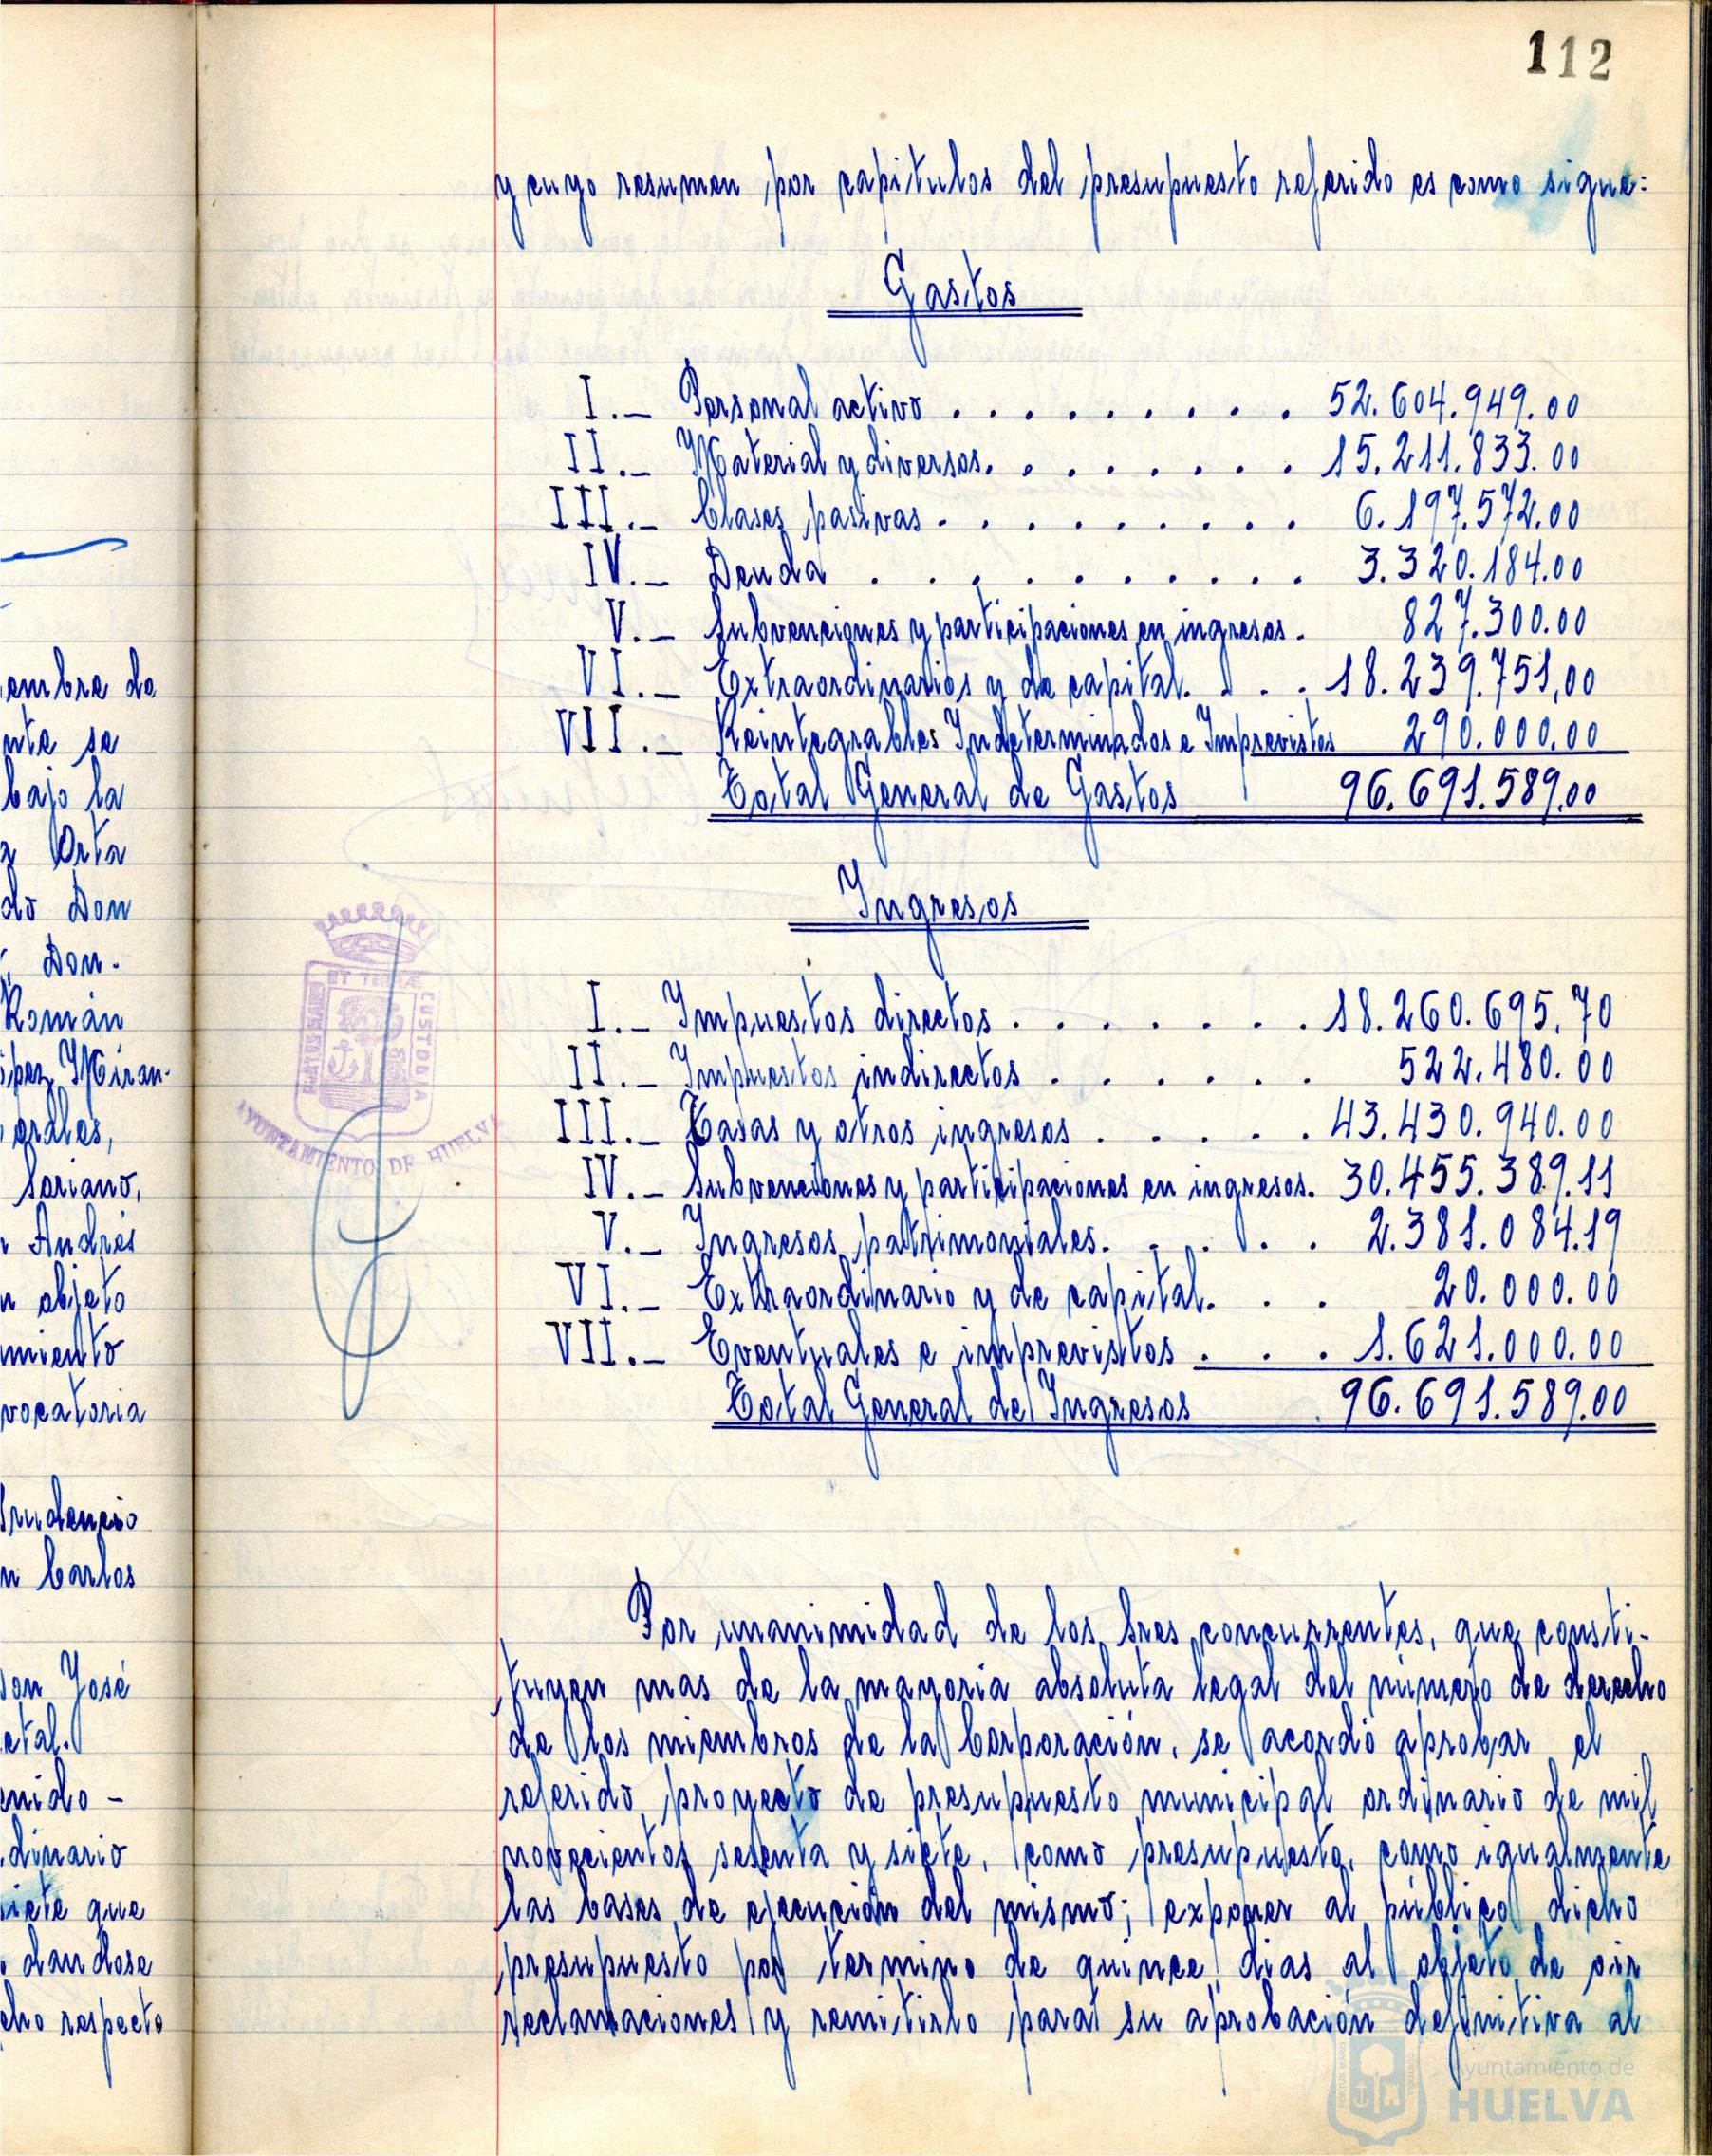 112
y cuyo resumen por capitulos del presupuesto referido es como sigue:
Gastos
I.- Personal activo . . . . . . . . . 52.604.949.00
II.- Material y diversos. . . . . . . . 15.211.833.00
III.- Clases pasivas . . . . . . . . . 6.197.572.00
IV.- Deuda . . . . . . . . . 3.320.184.00
V.- Subvenciones y participaciones en ingresos. 827.300.00
VI.- Extraordinarios y de capital. . . . 18.239.751,00
VII.- Reintegrables Indeterminados e Imprevistos 290.000.00
Total General de Gastos 96.691.589.00
Ingresos
I.- Impuestos directos . . . . . . . 18.260.695.70
II.- Impuestos indirectos . . . . . . 522.480.00
III.- Tasas y otros ingresos . . . . . 43.430.940.00
IV.- Subvenciones y participaciones en ingresos. 30.455.389.11
V.- Ingresos patrimoniales. . . . . 2.381.084.19
VI.- Extraordinario y de capital. . . 20.000.00
VII.- Eventuales e imprevistos . . . 1.621.000.00
Total General de Ingresos 96.691.589.00
Por unanimidad de los Sres concurrentes, que consti-
tuyen mas de la mayoria absoluta legal del número de derecho
de los miembros de la Corporación, se acordó aprobar el
referido proyecto de presupuesto municipal ordinario de mil
novecientos sesenta y siete, como presupuesto, como igualmente
las bases de ejecución del mismo; exponer al público dicho
presupuesto por termino de quince dias al objeto de oir
reclamaciones y remitirlo para su aprobación definitiva al
embre de
nte se
bajo la
z Orta
do Don
Don.
Román
ipez Miran-
orales,
Soriano,
n Andrés
n objeto
miento
vocatoria
Prudencio
n Carlos
Don José
etal.
enido -
dinario
siete que
dandose
cho respecto
ET TERRAE
CUSTODIA
AYUNTAMIENTO DE HUELVA
Ayuntamiento de
HUELVA